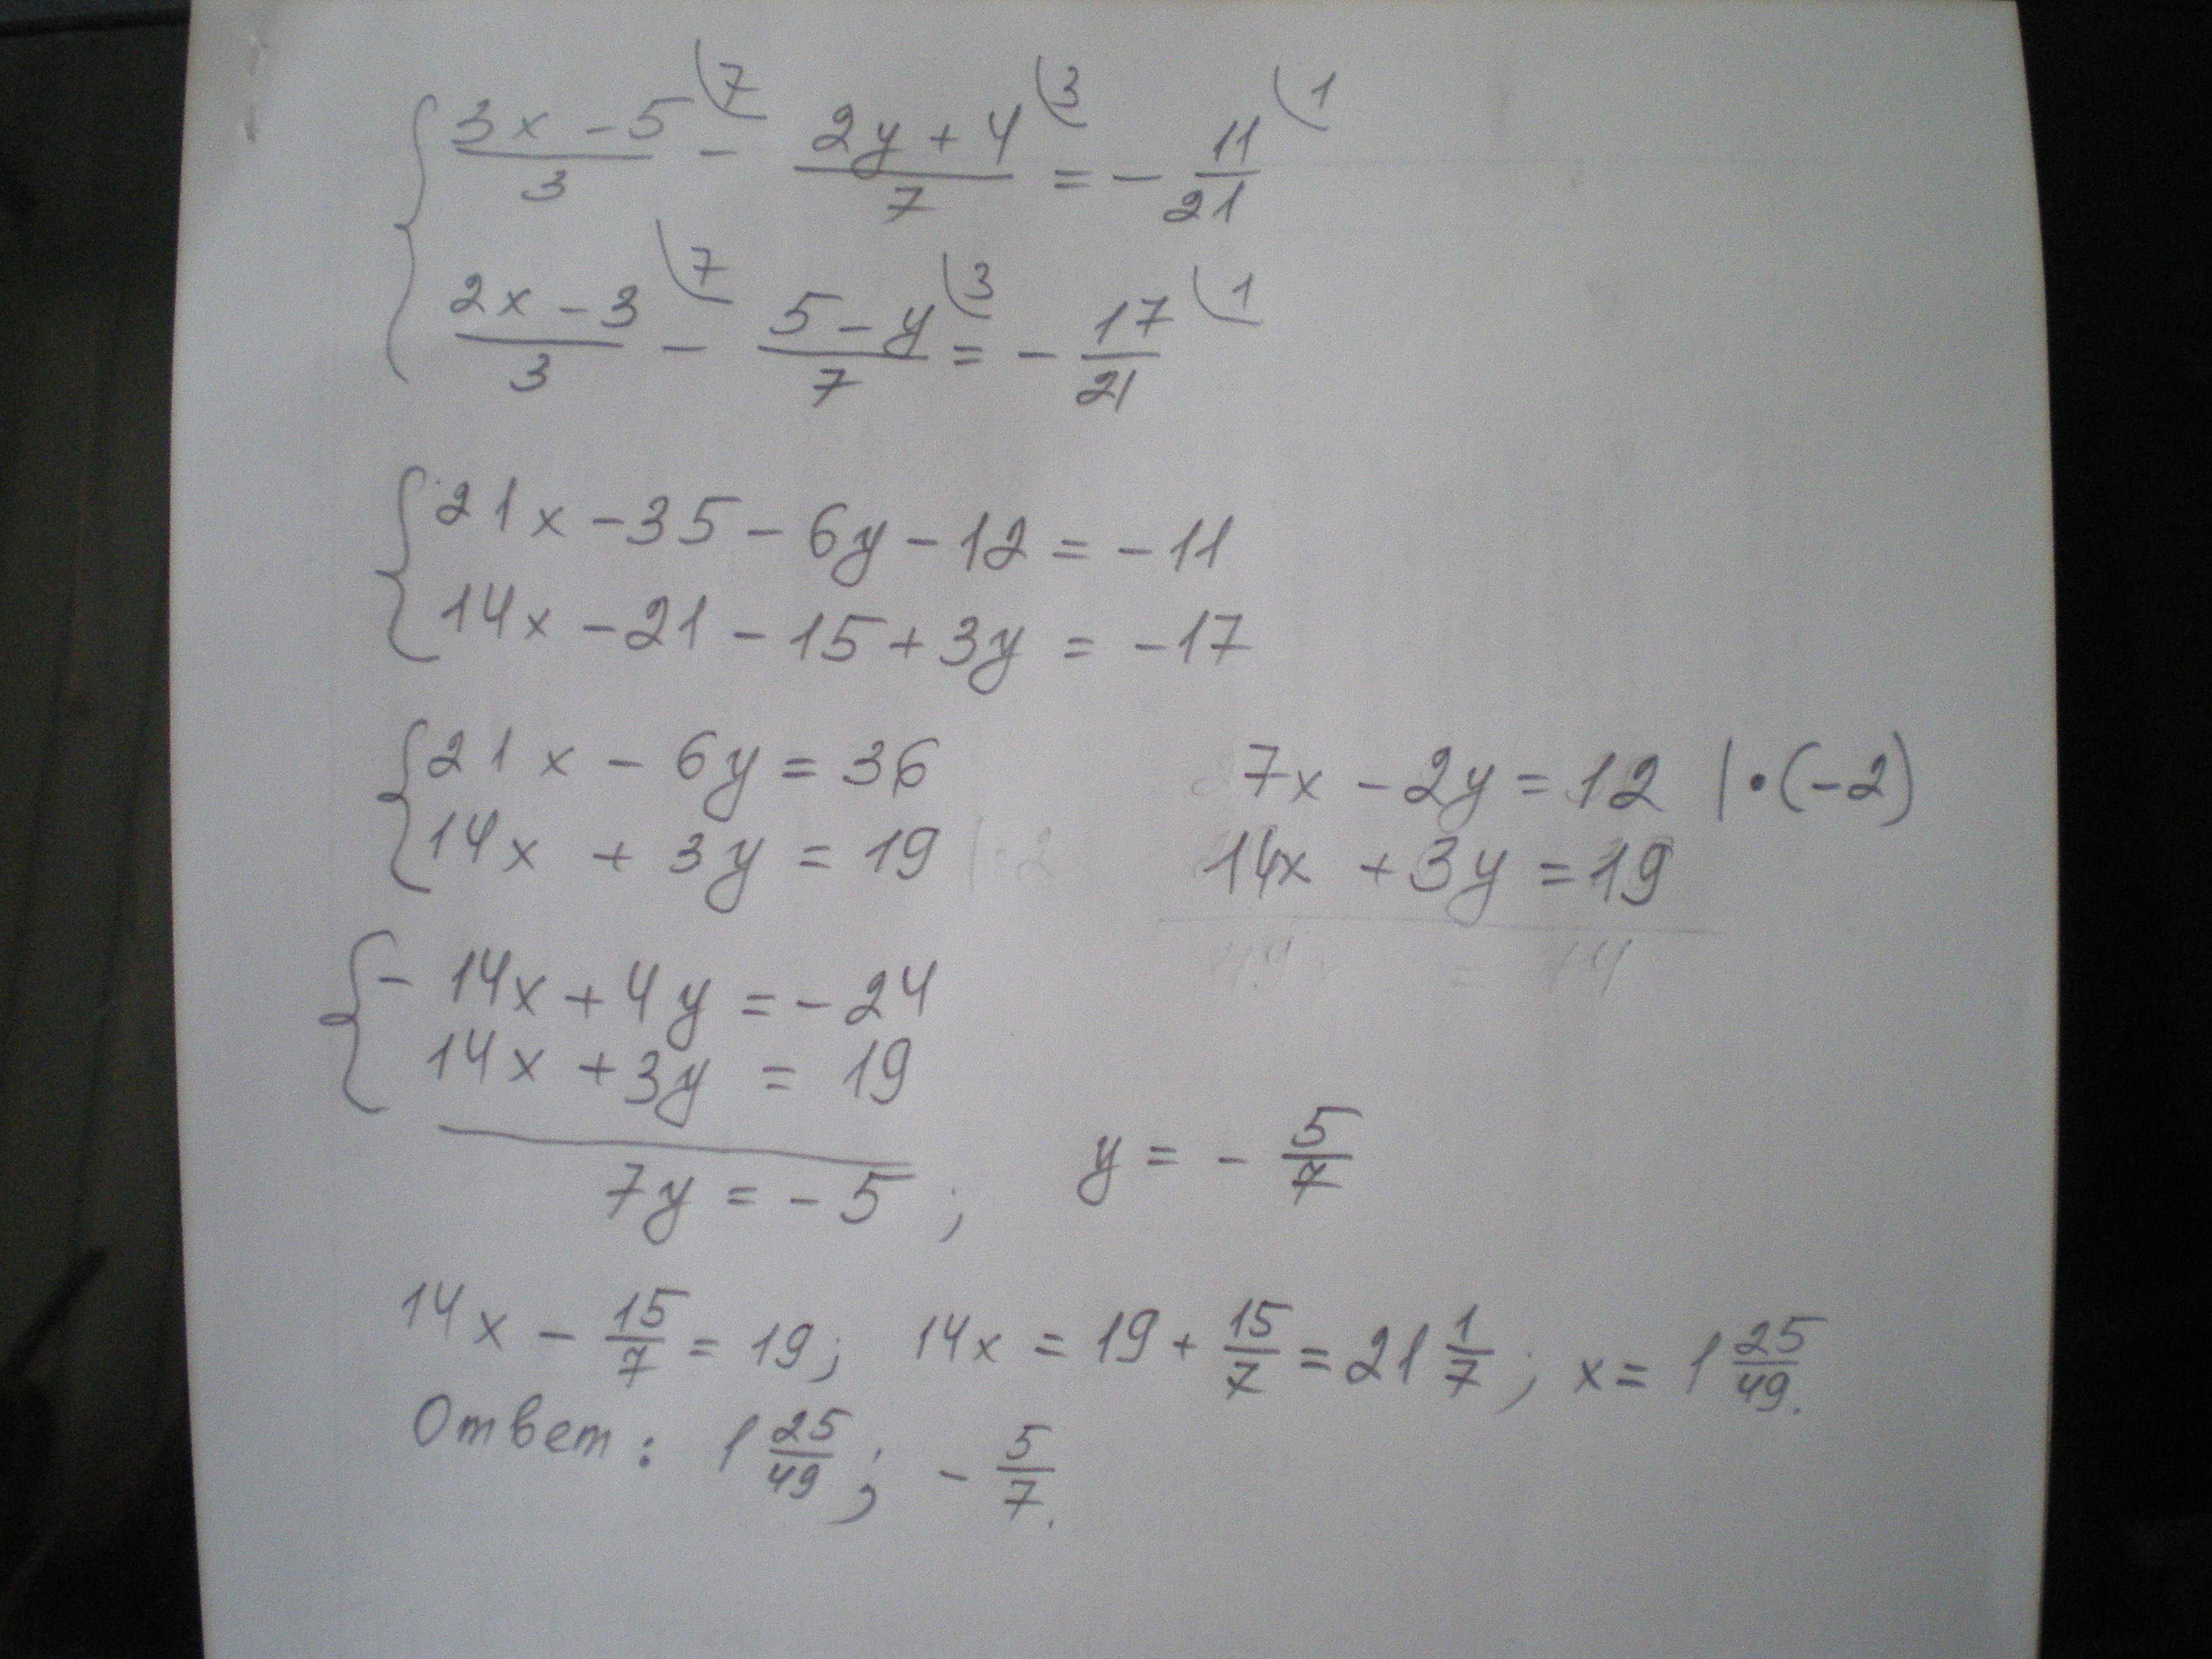 (3x - 5)/3 ⁽⁷ - (2y + 4)/7 ⁽³ = - 11/21 ⁽¹
(2x - 3)/3 ⁽⁷ - (5 - y)/7 ⁽³ = - 17/21 ⁽¹
21x - 35 - 6y - 12 = - 11
14x - 21 - 15 + 3y = - 17
21x - 6y = 36    7x - 2y = 12 | • (-2)
14x + 3y = 19    14x + 3y = 19
- 14x + 4y = - 24
14x + 3y = 19
7y = - 5 ;    y = - 5/7
14x - 15/7 = 19; 14x = 19 + 15/7 = 21 1/7 ; x = 1 25/49.
Ответ: 1 25/49 ; - 5/7.